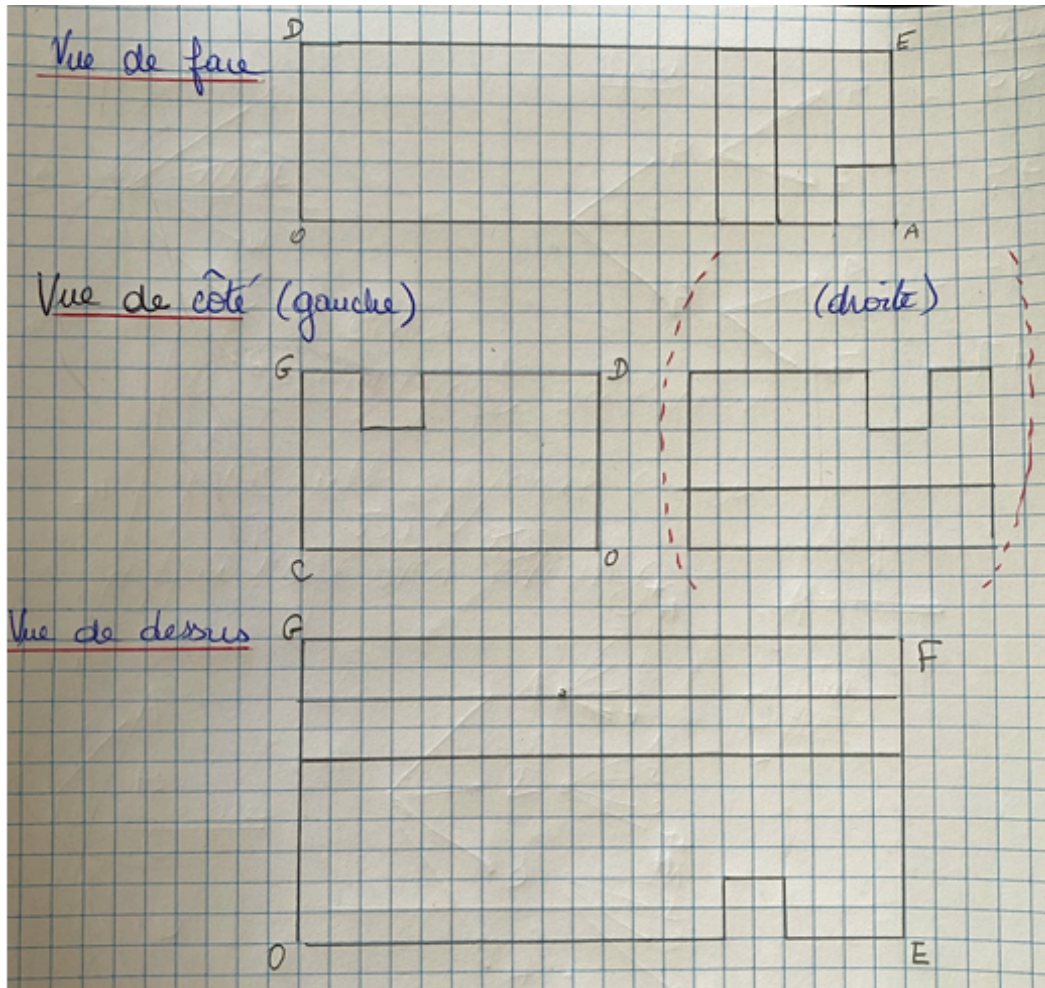 D
E
Vue de face
O
A
Vue de côté (gauche)
(droite)
G
D
C
O
Vue de dessus
G
F
O
E